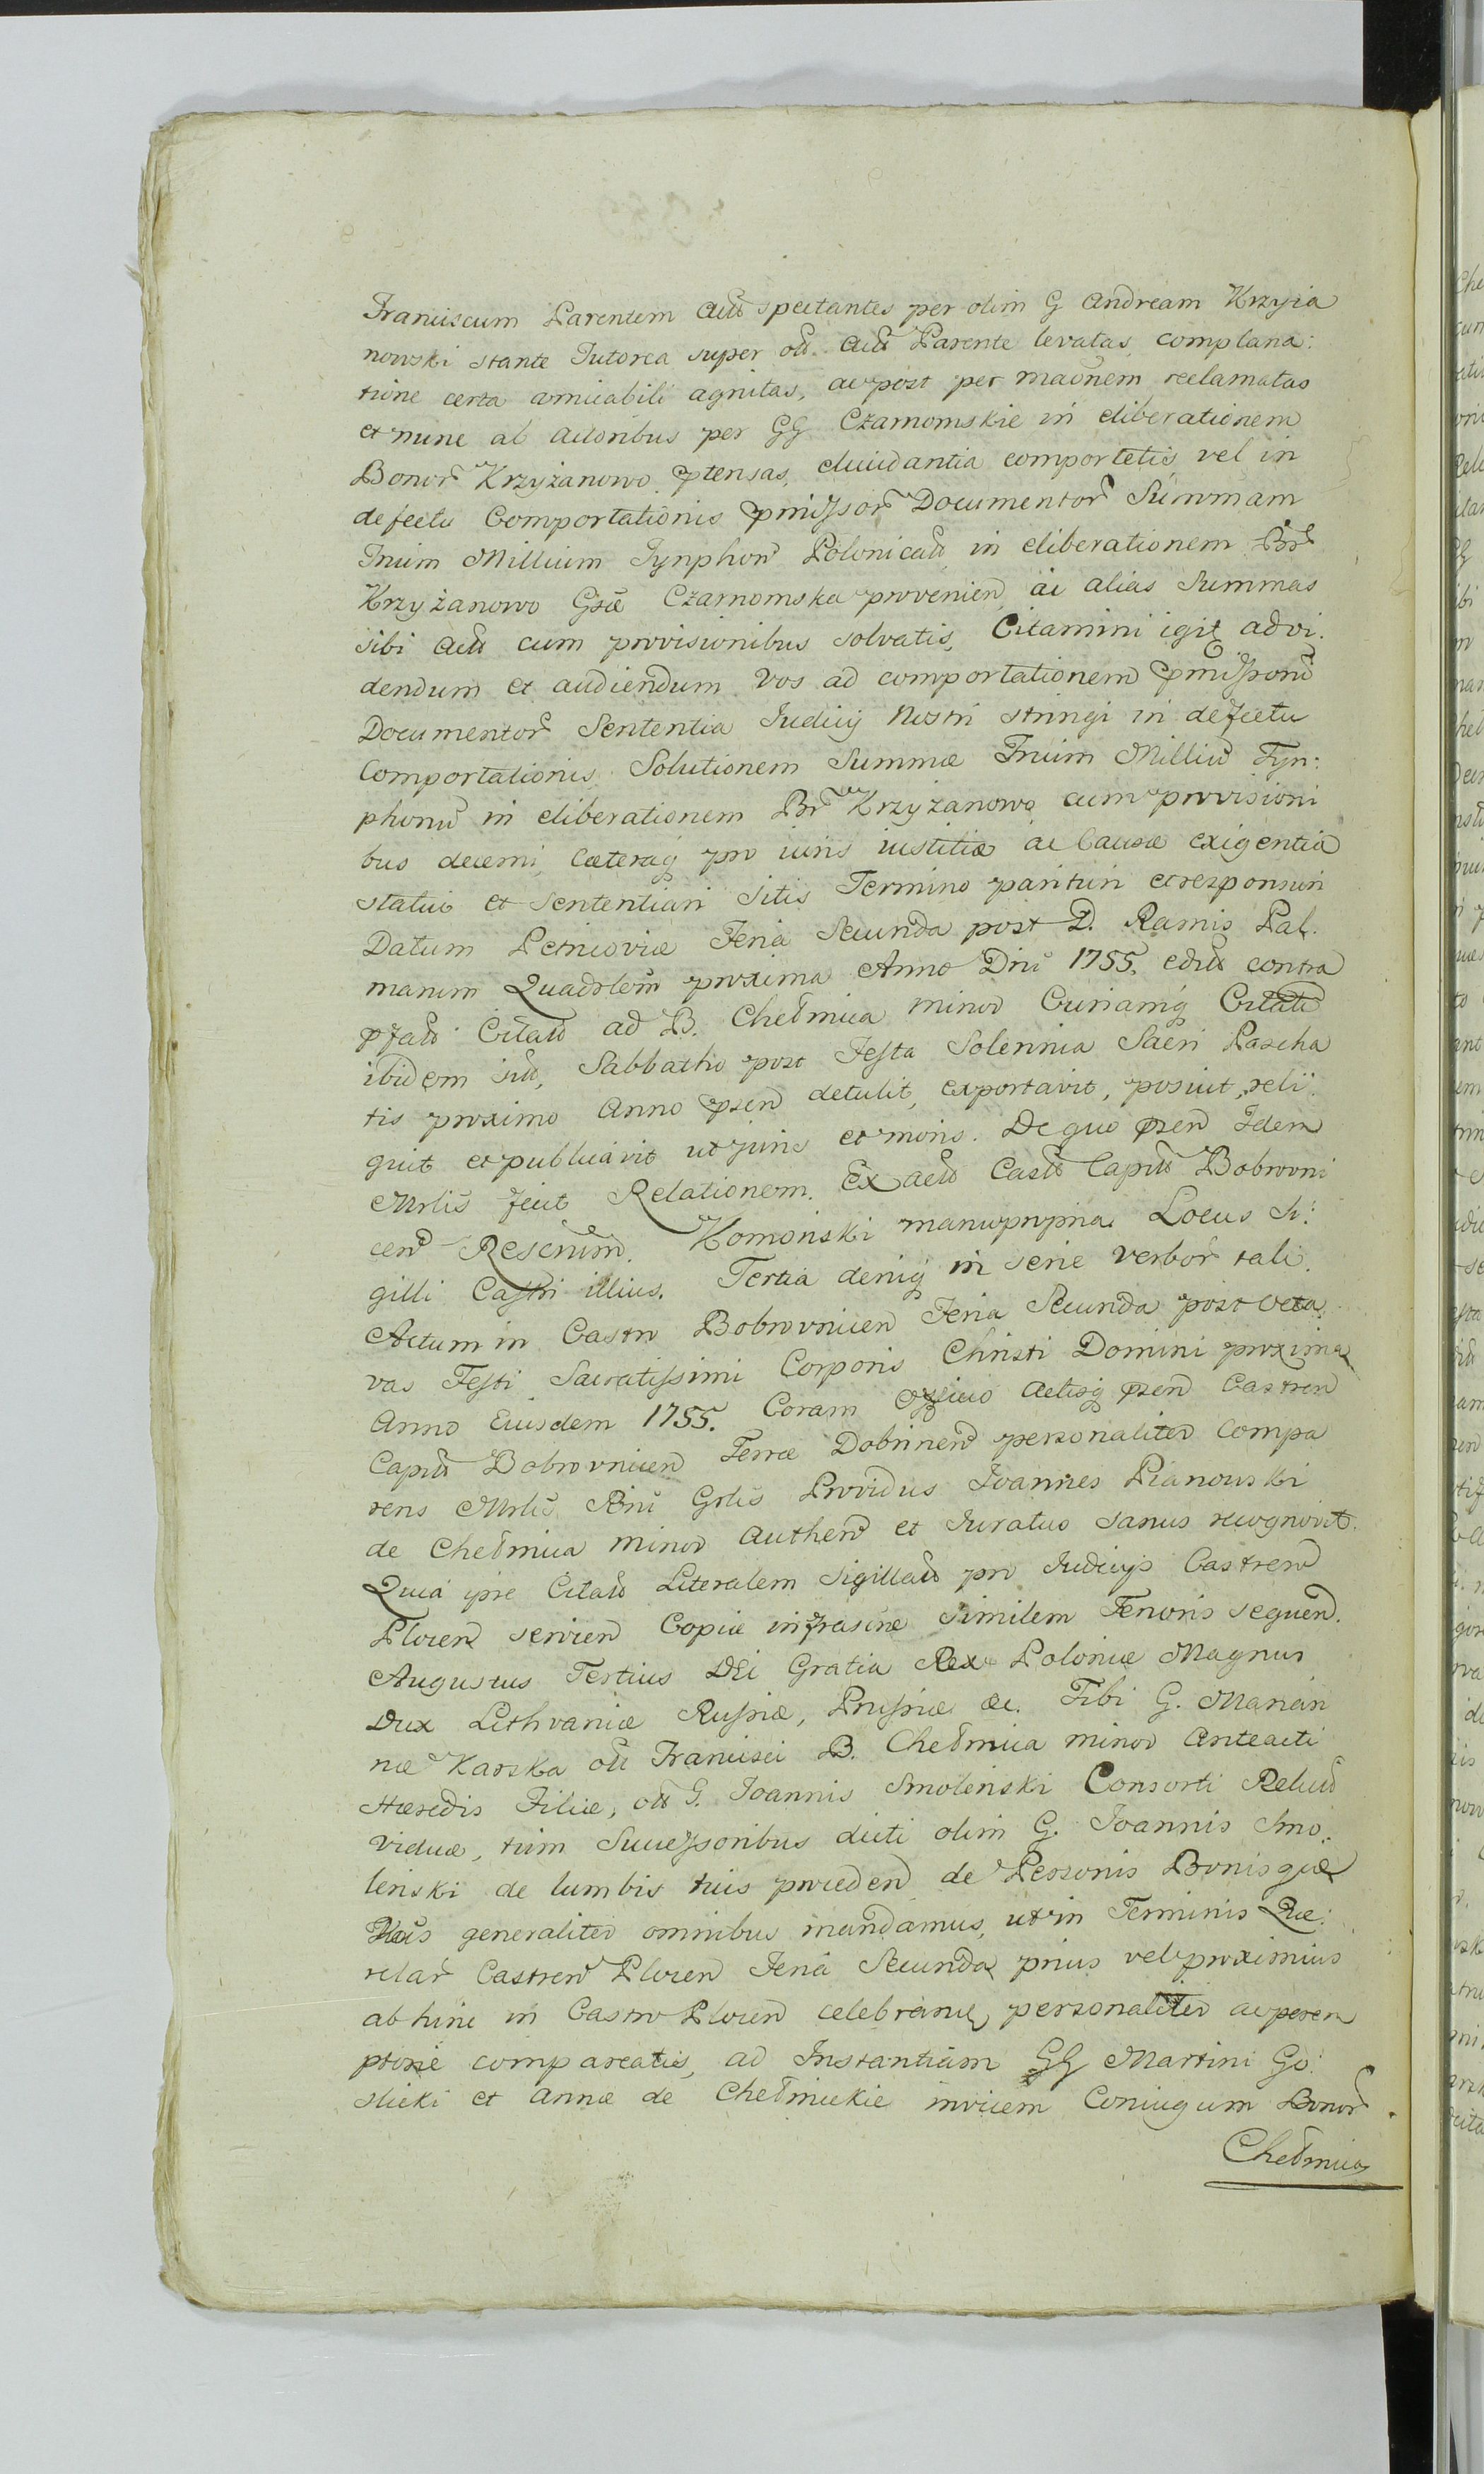 Franciscum Parentem Actt spectantes per olim G Andream Krzyża
nowski stante Tutorea super ott Actt Parente levatas, complana:
tione certa amicabili agnitas, ac post per maõnem reclamatas
et nunc ab Actoribus per GG Czarnomskie in eliberationem
Bonor Krzyżanowo ptensas, elucidantia comportetis, vel in
defectu Comportationis pmissor Documentor Summam
Trium Millium Tynphon Polonicatt in eliberationem Br
Krzyżanowo Gsæ Czarnomska provenien ac alias Summas
sibi Actt cum provisionibus solvatis, Citamini igit ad vi.
dendum et audiendum Vos ad comportationem pmissorū
Documentor Sententia Judicij Nostri stringi in defectu
Comportationis Solutionem Summæ Trium Milliū Tyn:
phonū in eliberationem Br Krzyżanowo cum provisioni
bus decerni, Cæteraq pro iuris iustitiæ ac Causæ exigentia
statui et Sententiari Sitis Termino parituri et responsuri
Datum Petricoviæ Feria Secunda post D. Ramis Pal.
marum Quadrlem proxima Anno Dni 1755. edtt contra
pfatt Citatt ad B. Chełmica minor Curiamq Citati
ibidem sitt, Sabbatho post Festa Solennia Sacri Pascha
tis proximo Anno psen detulit, exportavit, posuit, reli:
quit et publicavit ut juris et moris. De quo psen Idem
Mrlis fecit Relationem. Ex actt Castt Capitt Bobrovni
cen Rescrium. Komoński manu propria Locus Si:
gilli Castri illius. Tertia deniq in serie verbor tali.
Actum in Castro Bobrovnicen Feria Secunda post Octa
vas Festi Sacratissimi Corporis Christi Domini proxima
Anno Eiusdem 1755. Coram Officio Actisq psen Castren
Capitt Bobrovnicen Terræ Dobrinen personaliter Compa
rens Mrlis Rni Grlis Providus Joannes Pianowski
de Chełmica minor Authen et Juratus sanus recognovit.
Quia ipse Citatt Literalem Sigillatt pro Judicijs Castren
Plocen servien Copiæ infrascræ similem Tenoris sequen.
Augustus Tertius DEi Gratia Rex Poloniæ Magnus
Dux Lithvaniæ Russiæ, Prussiæ &c. Tibi G. Marian
næ Karska ott Francisci B. Chełmica minor Anteacti
Hæredis Filiæ, ott G. Joannis Smoleński Consorti Relictt
viduæ, tum Successoribus dicti olim G. Joannis Smo:
leński de lumbis tuis proceden de Personis Bonisque
generaliter omnibus mandamus, ut in Terminis Que:
relar Castren Plocen Feria Secunda prius vel proximius
ab hinc in Castro Plocen celebran, personaliter ac peren
ptorie compareatis, ad Instantiam GG Martini Go:
slicki et Annæ de Chełmickie invicem Coniugum Bonor
Chełmica